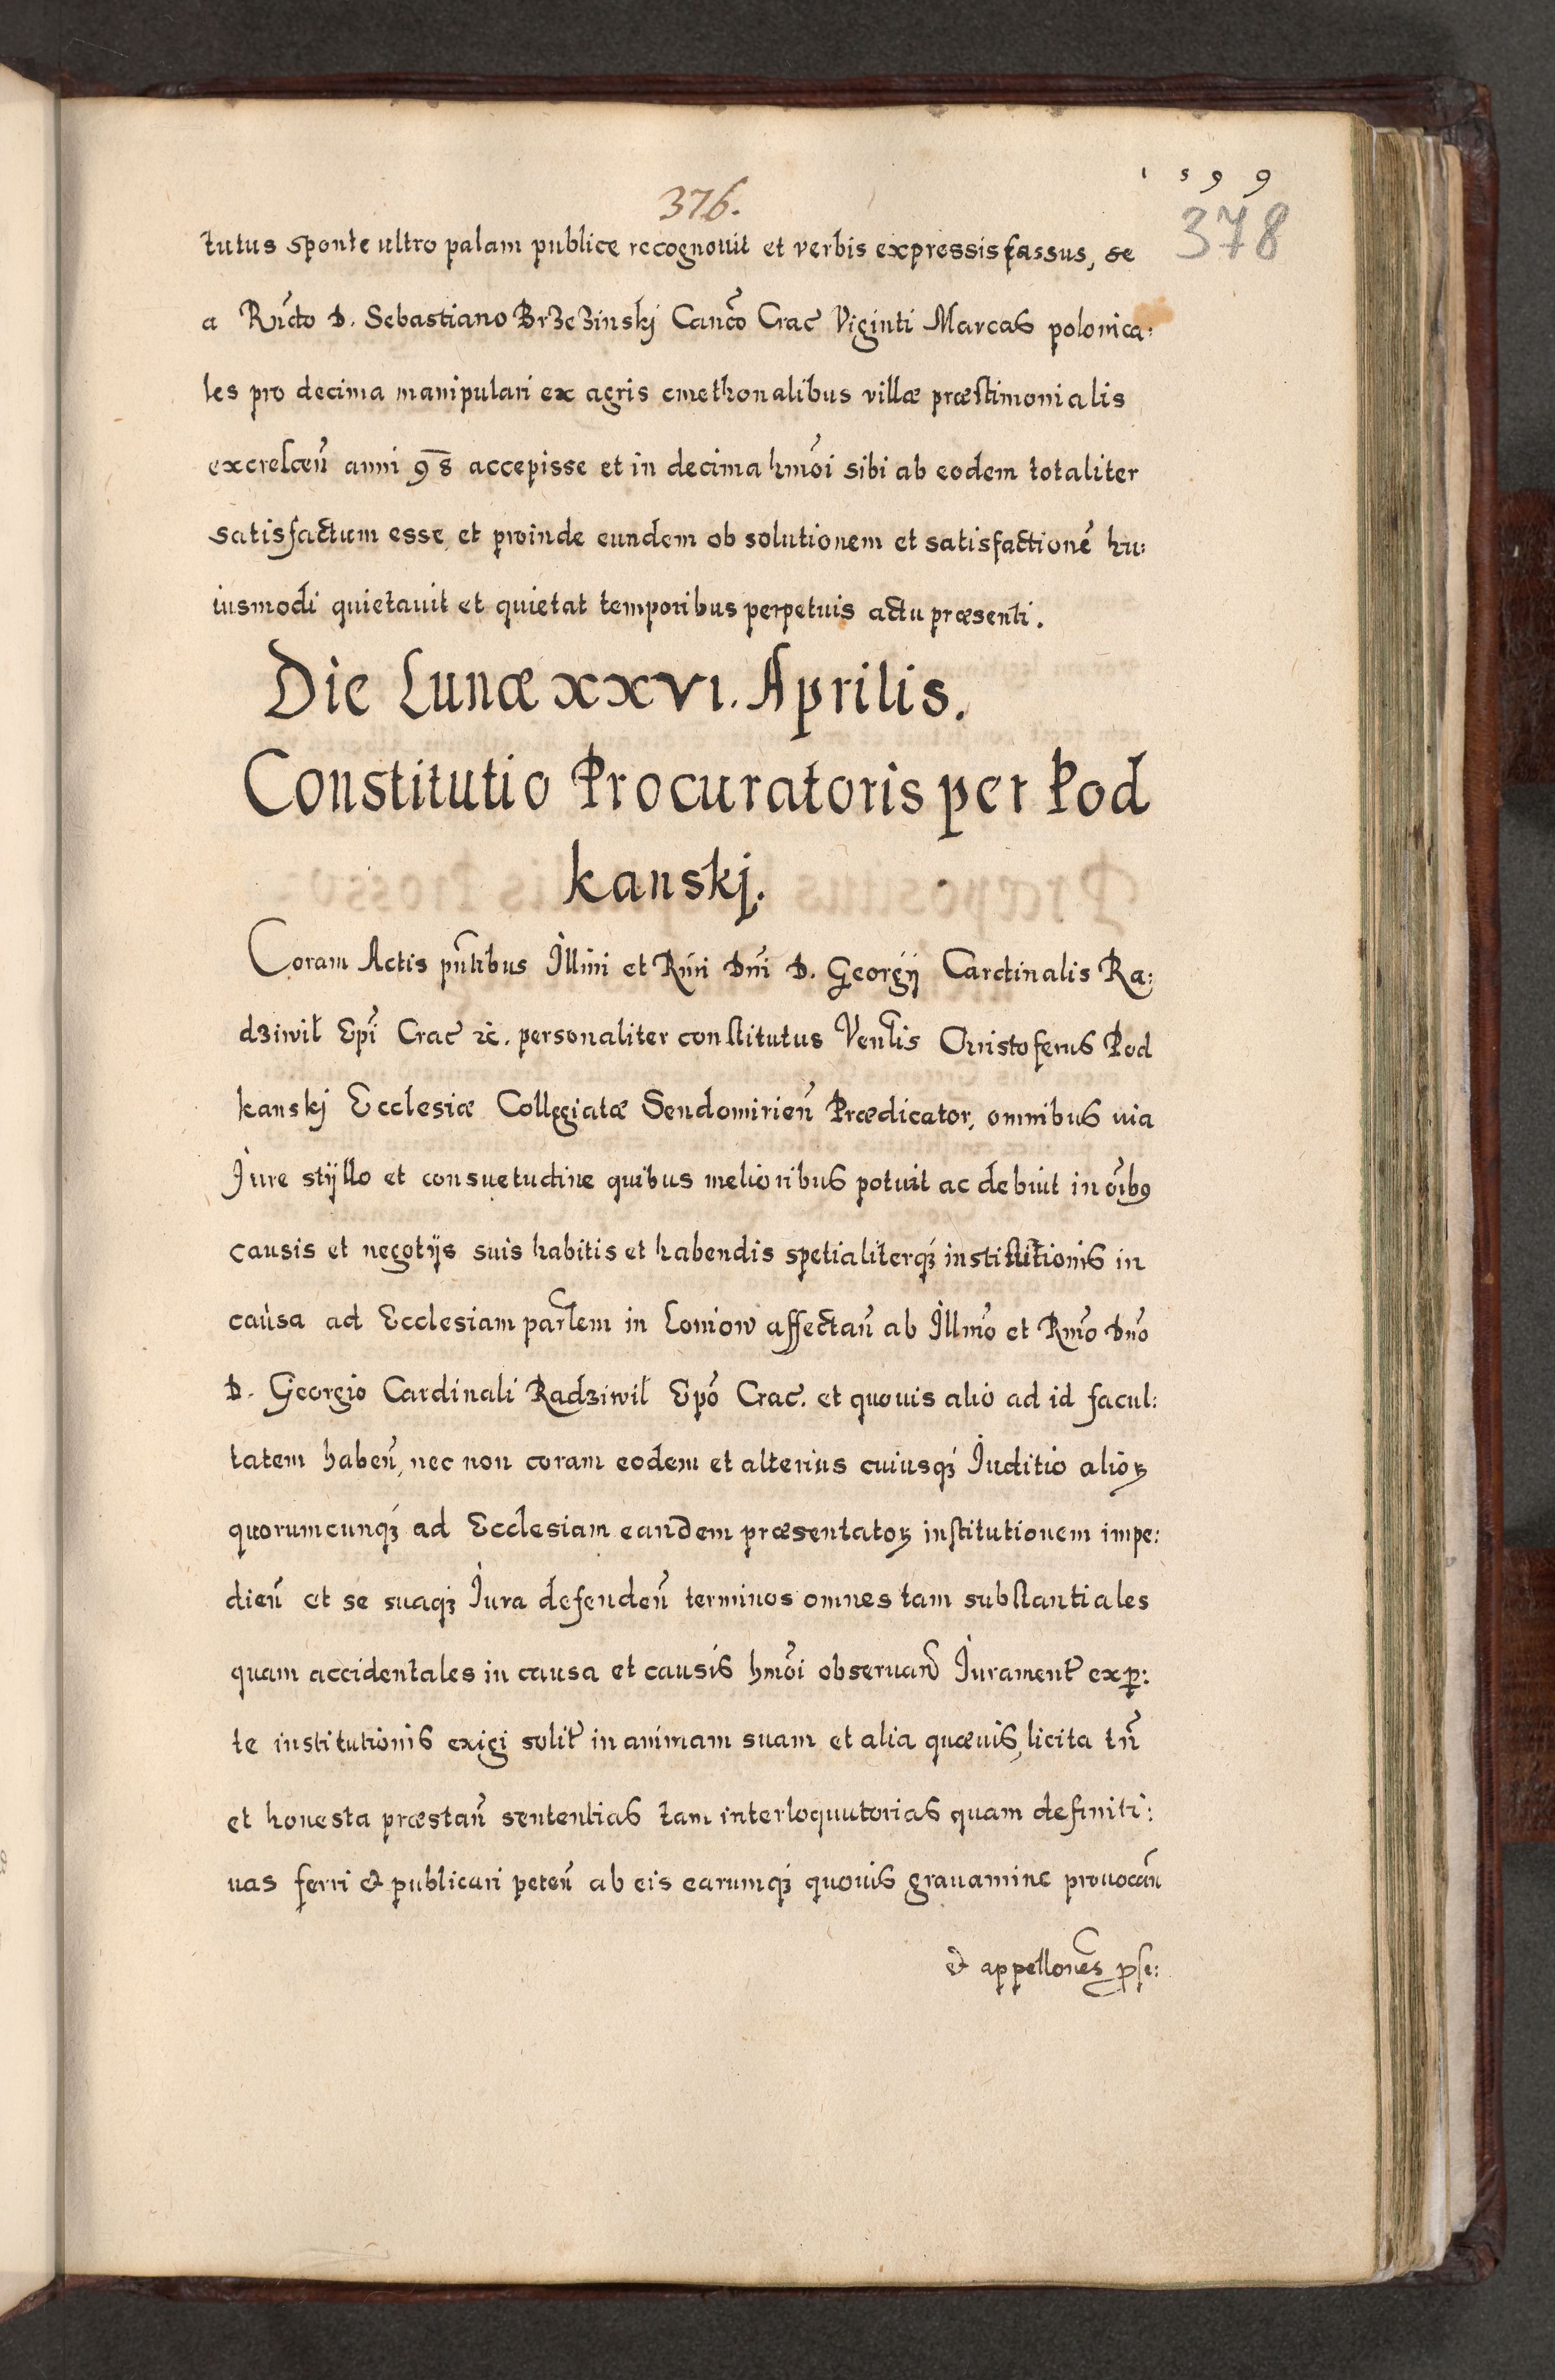 1599
376.
378
tutus sponte ultro palam publice recognouit et verbis expressis fassus, se
a Rńdo D. Sebastiano Brzezinskj Canco Crac Viginti Marcas polonica:
les pro decima manipulari ex agris cmethonalibus villæ præstimonialis
excrescen̄ anni 98 accepisse et in decima hmōi sibi ab eodem totaliter
satisfactum esse, et proinde eundem ob solutionem et satisfactionē hu:
iusmodi quietauit et quietat temporibus perpetuis actu præsenti.
Die Lunæ xxvi. Aprilis.
Constitutio Procuratoris per Pod
kanskj.
Coram Actis pn̄tibus Illmi et Rmi Dn̄i D. Georgij Cardinalis Ra:
dziwił Ep̄i Crac ꝛc. personaliter constitutus Ven̄lis Christoferus Pod
kanskj Ecclesiæ Collegiatæ Sendomirien̄ Prædicator, omnibus uia
Jure stÿllo et consuetudine quibus melioribus potuit ac debuit in oībꝰ
causis et negotijs suis habitis et habendis spetialiterqꝫ institutionis in
causa ad Ecclesiam parlem in Loniow affectan̄ ab Illmo et Rmo Dn̄o
D. Georgio Cardinali Radziwił Ep̄o Crac. et quouis alio ad id facul:
tatem haben̄, nec non coram eodem et alterius cuiusqꝫ Iuditio alioꝝ
quorumcunqꝫ ad Ecclesiam eandem præsentatoꝝ institutionem impe:
dien̄ et se suaqꝫ Iura defenden̄ terminos omnes tam substantiales
quam accidentales in causa et causis hmōi obseruan̄ Iurament̄ ex ꝑ:
te institutionis exigi solit̄ in animam suam et alia quæuis, licita tn̄
et honesta præstan̄ sententias tam interloquutorias quam definiti:
uas ferri & publicari peten̄ ab eis earumqꝫ quouis grauamine prouocan̄
& appellones ꝓse: